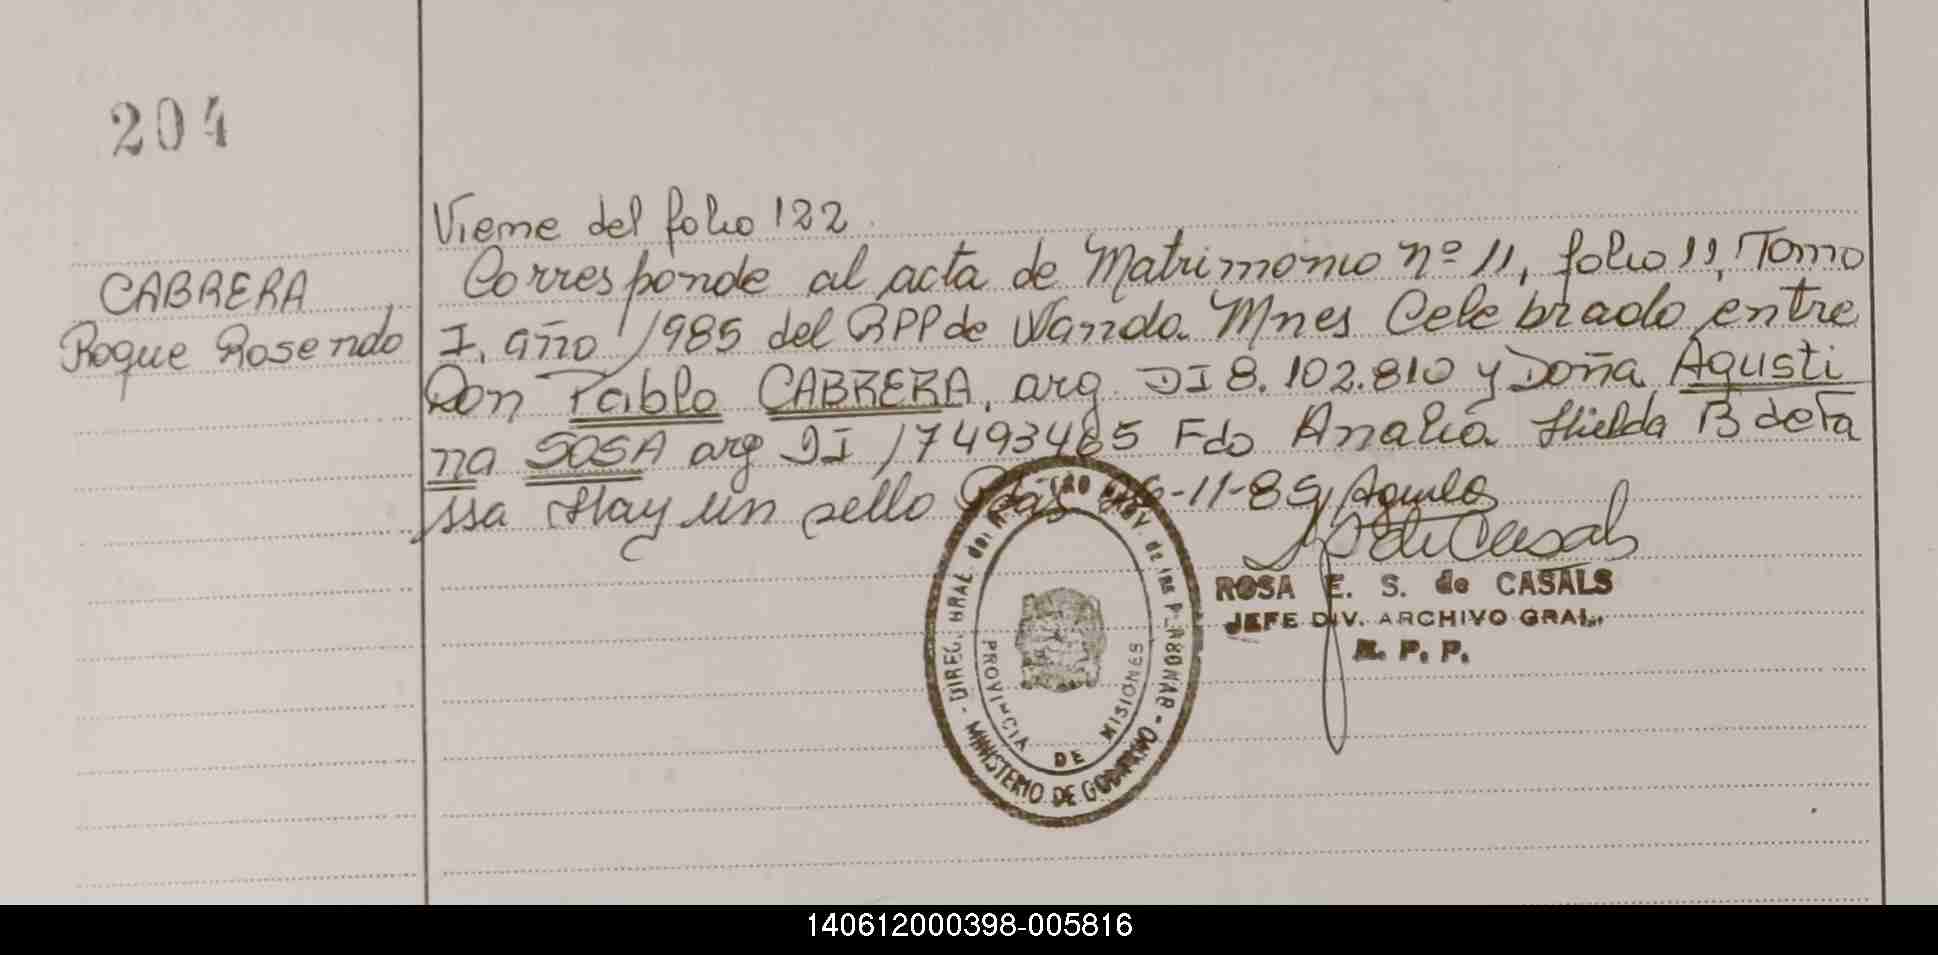 204
CABRERA
Roque Rosendo
Viene del folio 122
Corresponde al acta de Matrimonio nº 11, folio 11, Tomo
I. año 1985 del RPP de Wanda. Mnes Celebrado entre
Don Pablo CABRERA, arg. DI 8.102.810 y Doña Agusti
na SOSA arg DI 17493465 Fdo Analia Hilda B de Ta
ssa Hay un sello Pdas -11-85 Aquila
ROSA E. S. de CASALS
JEFE DIV. ARCHIVO GRAL.
R. P. P.
DIREC. GRAL. del REGISTRO PROV. de las PERSONAS - MINISTERIO DE GOBIERNO -
PROVINCIA DE MISIONES
140612000398-005816